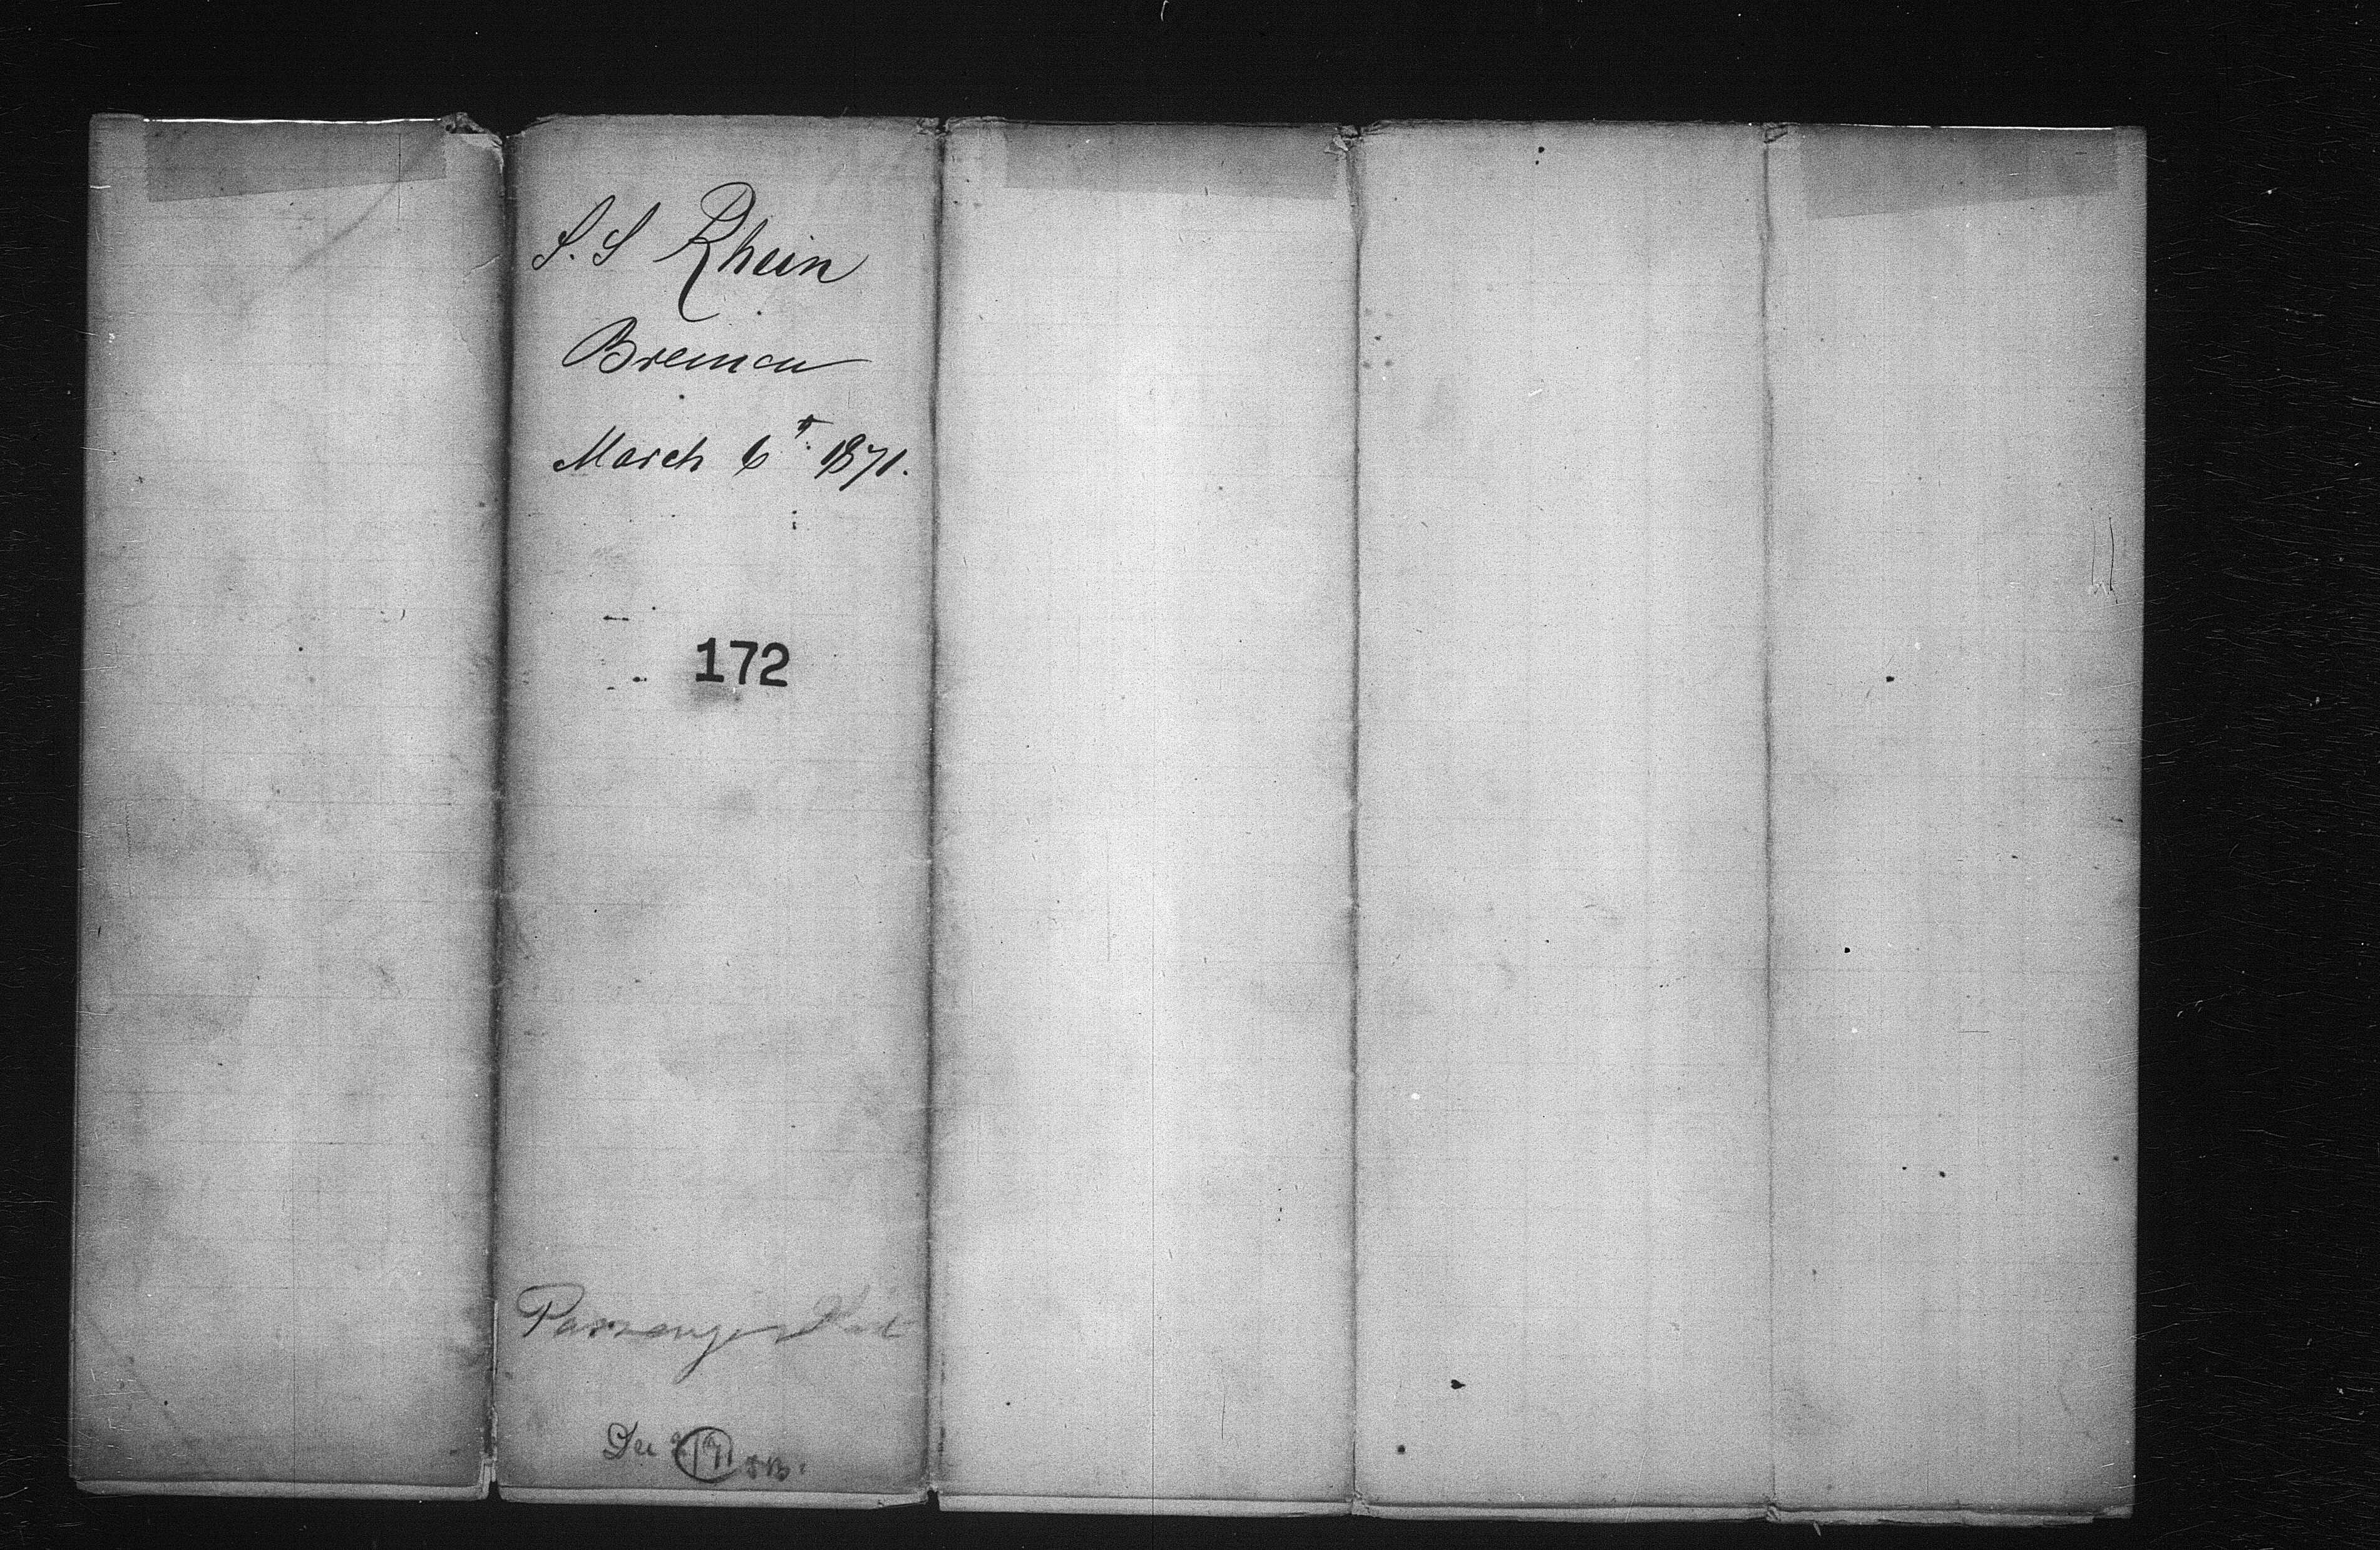 S.S Rhein
Bremen
March 6th 1871.
172
Passenger List